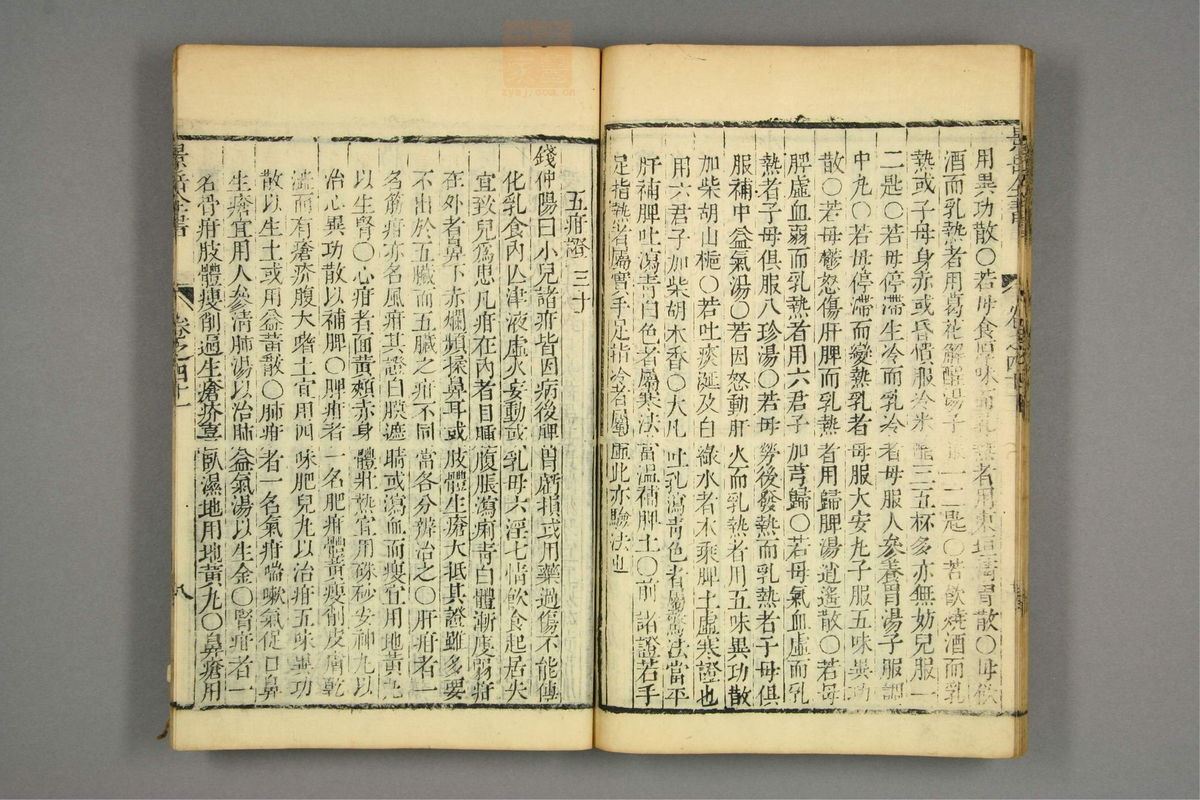 用異功散〇若母食厚味而乳熱者用東垣清胃散〇母飲
酒而乳熱者用葛花解酲湯子服一二匙〇若飲燒酒而乳
熱或子母身赤或昏憒服冷米醋三五杯多亦無妨兒服一
二匙〇若母停滯生冷而乳冷者母服人參養胃湯子服調
中丸〇若母停滯而變熱乳者母服大安丸子服五味異功
散〇若母鬱怒傷肝脾而乳熱者用歸脾湯逍遙散〇若母
脾虛血弱而乳熱者用六君子加芎歸〇若母氣血虛而乳
熱者子母俱服八珍湯〇若母勞後發熱而乳熱者子母俱
服補中益氣湯〇若因怒動肝火而乳熱者用五味異功散
加柴胡山梔〇若吐痰涎及白綠水者木乘脾土虛寒證也
用六君子加柴胡木香〇大凡吐乳瀉青色者屬驚法當平
肝補脾吐瀉青白色者屬寒法當溫補脾土〇前諸證若手
足指熱者屬實手足指冷者屬虛此亦驗法也
五疳證 三十
錢仲陽曰小兒諸疳皆因病後脾胃虧損或用藥過傷不能傳
化乳食內亾津液虛火妄動或乳母六淫七情飲食起居失
宜致兒爲患凡疳在內者目腫腹脹瀉痢青白體漸瘦弱疳
在外者鼻下赤爛頻揉鼻耳或肢體生瘡大抵其證雖多要
不出於五臟而五臟之疳不同當各分辨治之〇肝疳者一
名筋疳亦名風疳其證白膜遮睛或瀉血而瘦宜用地黃丸
以生腎〇心疳者面黃頰赤身體壯熱宜用硃砂安神丸以
治心異功散以補脾〇脾疳者一名肥疳體黃瘦削皮膚乾
澁而有瘡疥腹大嗜土宜用四味肥兒丸以治疳五味異功
散以生土或用益黃散〇肺疳者一名氣疳喘嗽氣促口鼻
生瘡宜用人參清肺湯以治肺益氣湯以生金〇腎疳者一
名骨疳肢體瘦削遍生瘡疥喜臥濕地用地黃丸〇鼻瘡用
景岳全書
卷之四十一
八